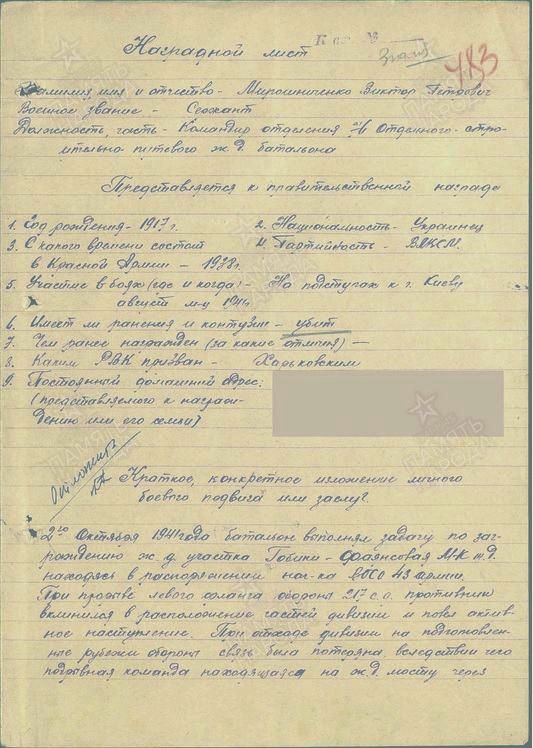 Наградной лист
483
Фамилия имя и отчество - Мирошниченко Виктор Петрович
Военное звание - Сержант
Должность, часть - Командир отделения Отдельного стро-
ительно путевого ж.д. батальона
Представляется к правительственной награде
1. Год рождения - 1917 г. 2. Национальность - Украинец
3. С какого времени состоит 4. Партийность - ВЛКСМ.
в Красной Армии - 1938 г.
5. Участие в боях (где и когда) - На подступах к г. Киеву
август м-ц 1941
6. Имеет ли ранения и контузии - убит
7. Чем ранее награжден (за какие отличия) —
8. Каким РВК призван - Харьковским
9. Постоянный домашний адрес:
(представляемого к награж-
дению или его семьи)
Отложить
Краткое, конкретное изложение личного
боевого подвига или заслуг
2го Октября 1941 года батальон выполнял задачу по заг-
рождению ж.д. участка Фаянсовая М-К ж.д.
находясь в распоряжении нач-ка ВОСО 43 армии.
При прорыве левого фланга обороны 217 с.д. противник
вклинился в расположение частей дивизии и повел актив-
ное наступление. При отходе дивизии на подготовлен-
ные рубежи обороны связь была потеряна, вследствии чего
подрывная команда находящаяся на ж.д. мосту через